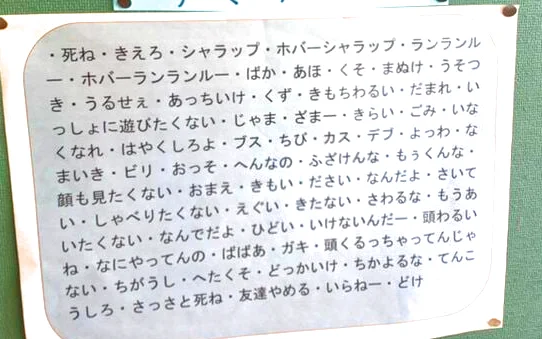 ・死ね・きえろ・シャラップ・ホバーシャラップ・ランランル
ー・ホバーランランルー・ばか・あほ・くそ・まぬけ・うそつ
き・うるせぇ・あっちいけ・くず・きもちわるい・だまれ・い
っしょに遊びたくない・じゃま・ざまー・きらい・ごみ・いな
くなれ・はやくしろよ・ブス・ちび・カス・デブ・よっわ・な
まいき・ビリ・おっそ・へんなの・ふざけんな・もぅくんな・
顔も見たくない・おまえ・きもい・ださい・なんだよ・さいて
い・しゃべりたくない・えぐい・きたない・さわるな・もうあ
いたくない・なんでだよ・ひどい・いけないんだー・頭わるい
ね・なにやってんの・ばばあ・ガキ・頭くるっちゃってんじゃ
ない・ちがうし・へたくそ・どっかいけ・ちかよるな・てんこ
うしろ・さっさと死ね・友達やめる・いらねー・どけ